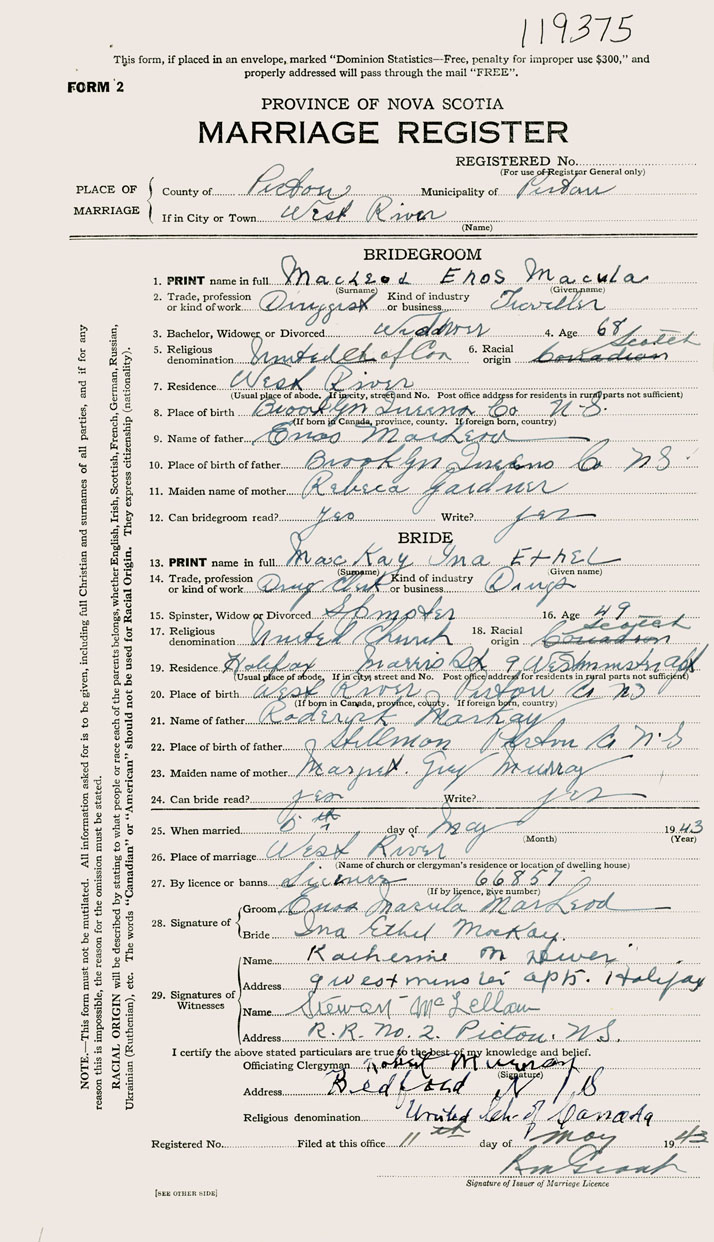 119375
This form, if placed in an envelope, marked "Dominion Statistics—Free, penalty for improper use $300," and
properly addressed will pass through the mail "FREE".
FORM 2
PROVINCE OF NOVA SCOTIA
MARRIAGE REGISTER
REGISTERED No.
(For use of Registrar General only)
PLACE OF MARRIAGE
County of Pictou Municipality of Pictou
If in City or Town West River
(Name)
BRIDEGROOM
1. PRINT name in full MacLeod Enos Macula
(Surname) (Given name)
2. Trade, profession or kind of work Druggist Kind of industry or business Traveller
3. Bachelor, Widower or Divorced Widower 4. Age 68
5. Religious denomination United Ch of Can 6. Racial origin Canadian Scotch
7. Residence West River
(Usual place of abode. If in city, street and No. Post office address for residents in rural parts not sufficient)
8. Place of birth Brooklyn Queens Co N.S.
(If born in Canada, province, county. If foreign born, country)
9. Name of father Enos MacLeod
10. Place of birth of father Brooklyn Queens Co NS
11. Maiden name of mother Rebeca Gardner
12. Can bridegroom read? yes Write? yes
BRIDE
13. PRINT name in full MacKay Ina Ethel
(Surname) (Given name)
14. Trade, profession or kind of work Drug Clerk Kind of industry or business Drugs
15. Spinster, Widow or Divorced Spinster 16. Age 49
17. Religious denomination United Church 18. Racial origin Canadian Scotch
19. Residence Halifax Morris St 9 Westminster apt
(Usual place of abode. If in city, street and No. Post office address for residents in rural parts not sufficient)
20. Place of birth West River Pictou Co NS
(If born in Canada, province, county. If foreign born, country)
21. Name of father Roderick MacKay
22. Place of birth of father Stillman Pictou Co N.S
23. Maiden name of mother Margret Murray
24. Can bride read? yes Write? yes
25. When married 6th day of May 1943
(Month) (Year)
26. Place of marriage West River
(Name of church or clergyman's residence or location of dwelling house)
27. By licence or banns Licence 66857
(If by licence, give number)
28. Signature of
Groom Enos Macula MacLeod
Bride Ina Ethel MacKay.
29. Signatures of Witnesses
Name Katherine M
Address 9 Westminster apts. Halifax
Name Stewart McLellan
Address R.R. No. 2. Pictou. N.S.
I certify the above stated particulars are true to the best of my knowledge and belief.
Officiating Clergyman Robert Murray
(Signature)
Address Bedford N.S
Religious denomination United Ch. of Canada
Registered No. Filed at this office 11th day of May 1943
RM Grant
Signature of Issuer of Marriage Licence
[SEE OTHER SIDE]
NOTE.—This form must not be mutilated. All information asked for is to be given, including full Christian and surnames of all parties, and if for any
reason this is impossible, the reason for the omission must be stated.
RACIAL ORIGIN will be described by stating to what people or race each of the parents belongs, whether English, Irish, Scottish, French, German, Russian,
Ukrainian (Ruthenian), etc. The words "Canadian" or "American" should not be used for Racial Origin. They express citizenship (nationality).